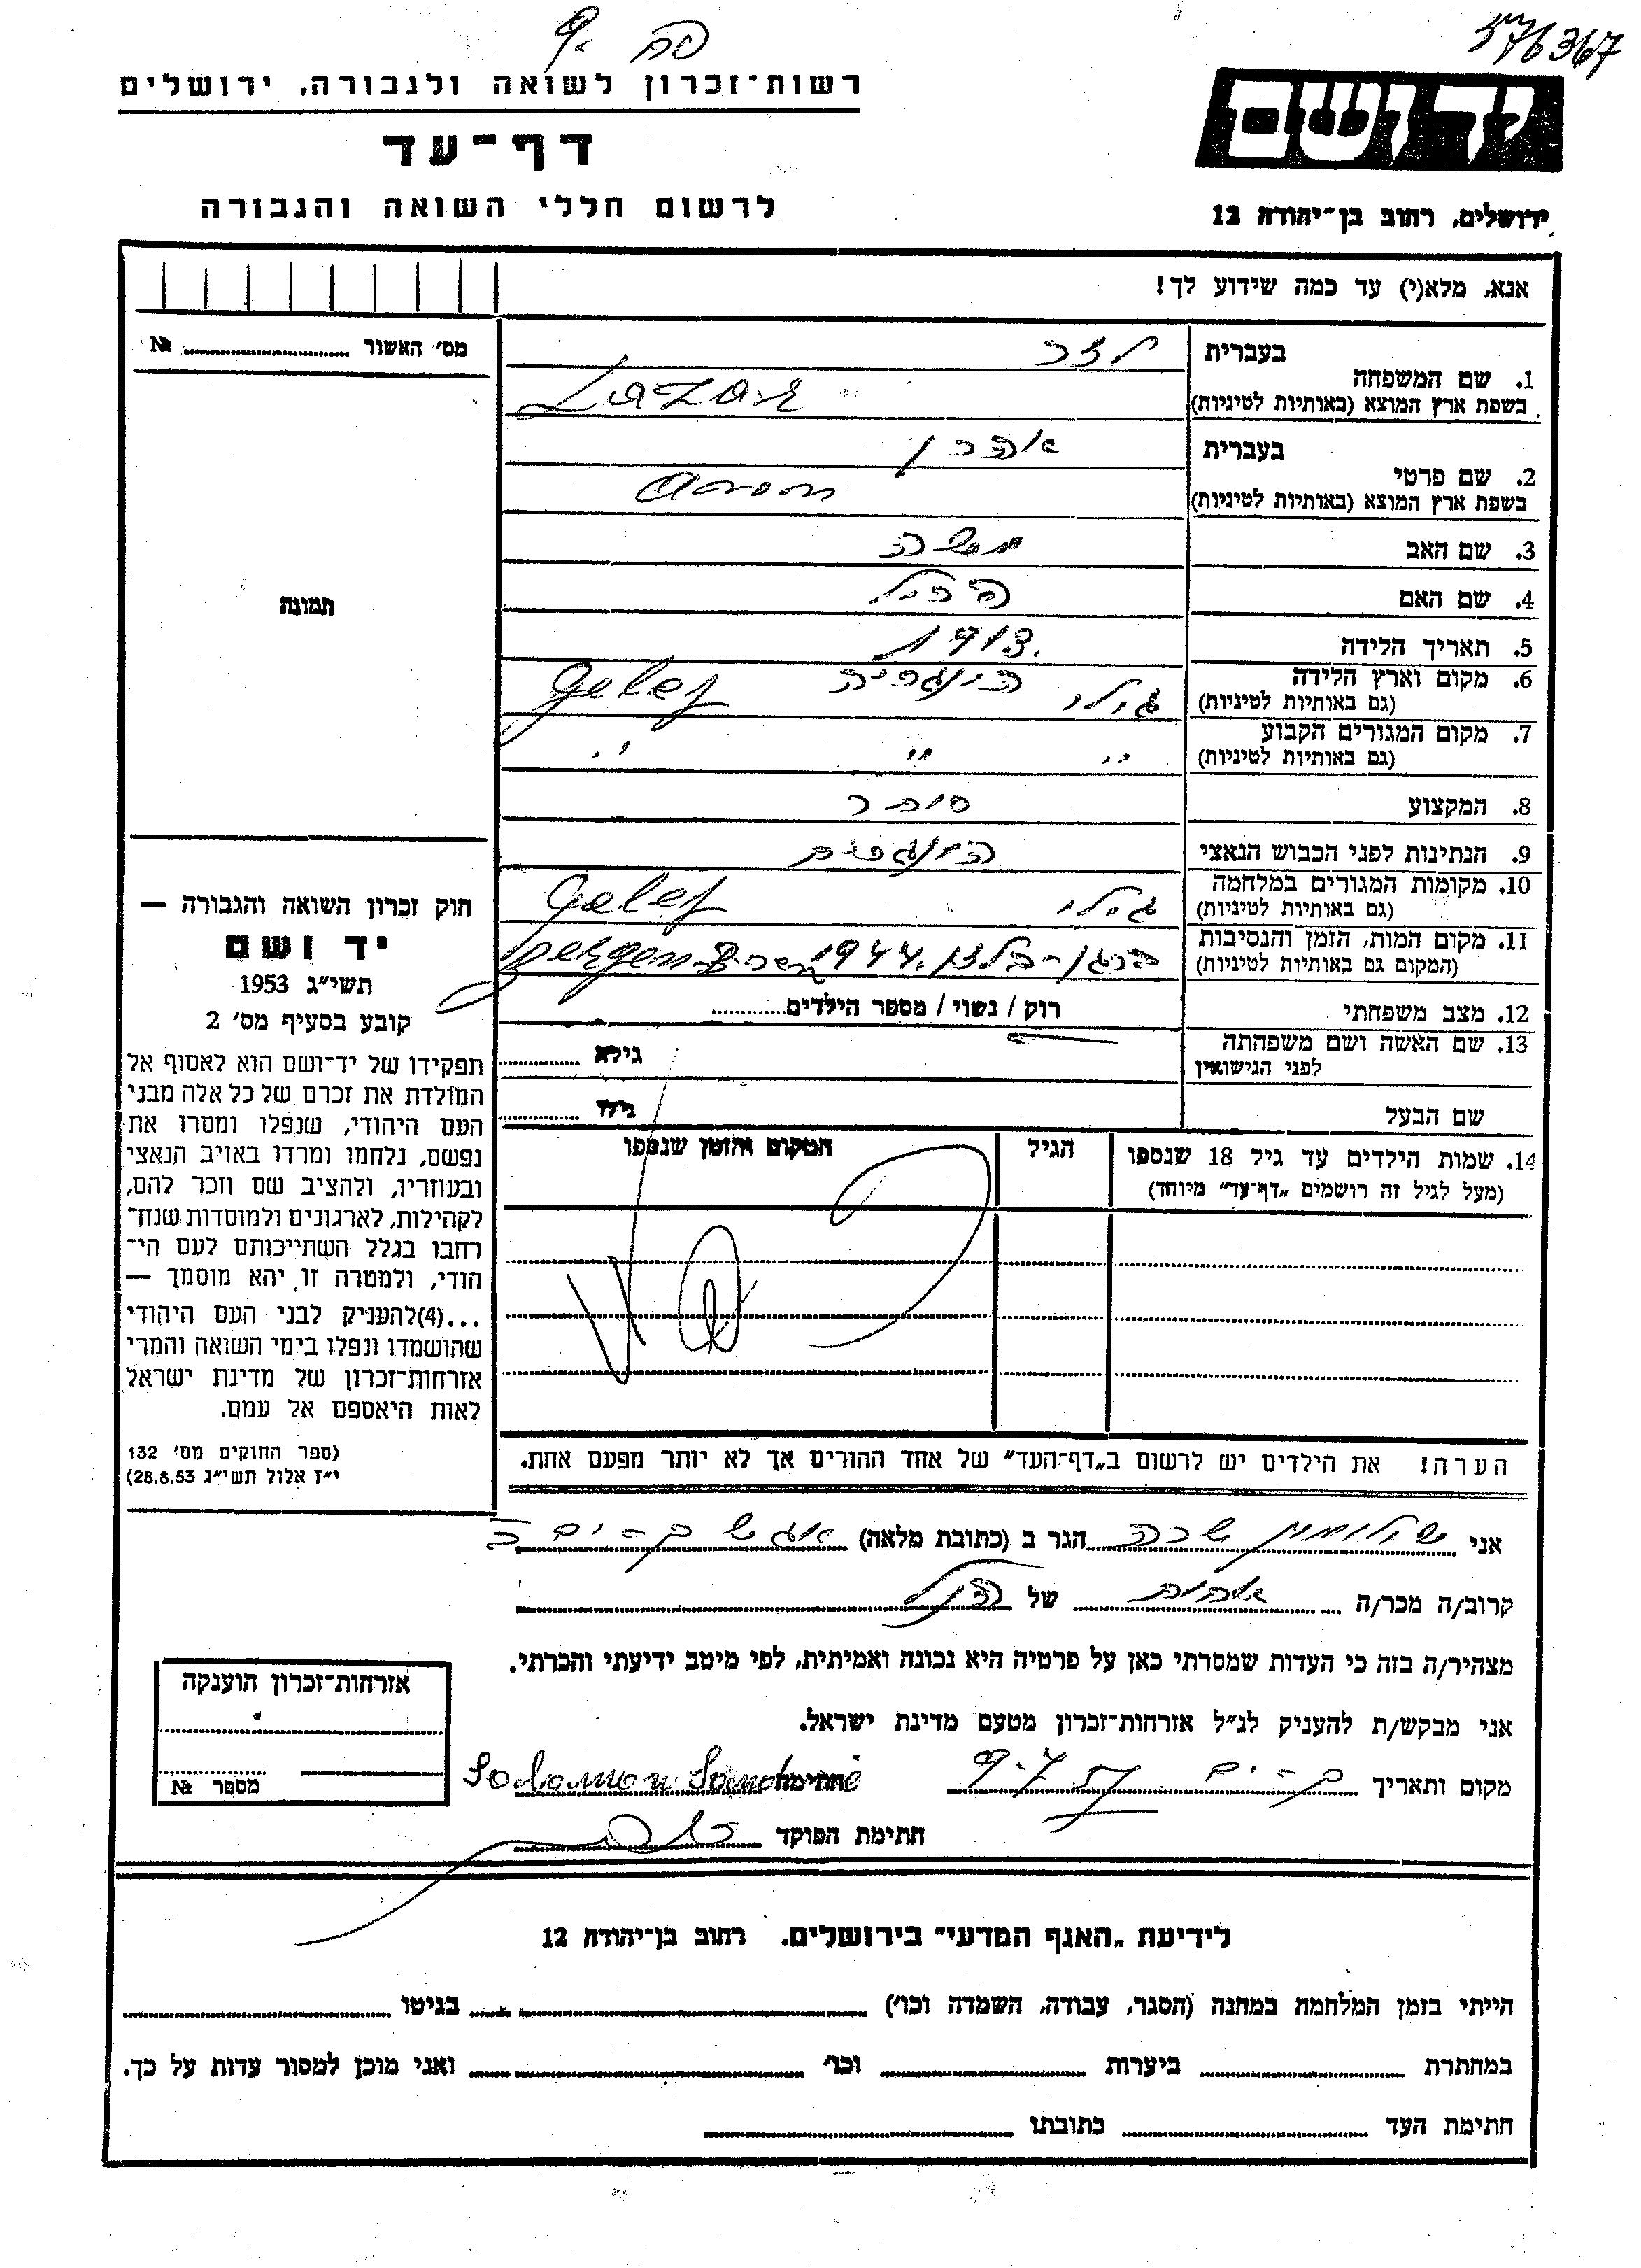 576367
רשות־זכרון לשואה ולגבורה, ירושלים
דף־עד
לרשום חללי השואה והגבורה
יד ושם
ירושלים, רחוב בן־יהודה 12
אנא, מלא(י) עד כמה שידוע לך!
מס׳ האשור № ..........
תמונה
1. שם המשפחה
בעברית לזר
בשפת ארץ המוצא (באותיות לטיניות) Lazar
2. שם פרטי
בעברית אהרן
בשפת ארץ המוצא (באותיות לטיניות) Aron
3. שם האב משה
4. שם האם
5. תאריך הלידה 1913.
6. מקום וארץ הלידה הונגריה
(גם באותיות לטיניות)
7. מקום המגורים הקבוע " " "
(גם באותיות לטיניות)
8. המקצוע סוחר
9. הנתינות לפני הכבוש הנאצי הונגרית
10. מקומות המגורים במלחמה
(גם באותיות לטיניות)
11. מקום המות, הזמן והנסיבות ברגן-בלזן 1944.
(המקום גם באותיות לטיניות)
12. מצב משפחתי רוק / נשוי / מספר הילדים..........
13. שם האשה ושם משפחתה
לפני הנישואין גילה ..........
שם הבעל גילו ..........
14. שמות הילדים עד גיל 18 שנספו
(מעל לגיל זה רושמים „דף־עד״ מיוחד)
הגיל
המקום והזמן שנספו
הערה! את הילדים יש לרשום ב„דף־העד״ של אחד ההורים אך לא יותר מפעם אחת.
חוק זכרון השואה והגבורה —
יד ושם
תשי״ג 1953
קובע בסעיף מס׳ 2
תפקידו של יד־ושם הוא לאסוף אל
המולדת את זכרם של כל אלה מבני
העם היהודי, שנפלו ומסרו את
נפשם, נלחמו ומרדו באויב הנאצי
ובעוזריו, ולהציב שם וזכר להם,
לקהילות, לארגונים ולמוסדות שנח־
רחבו בגלל השתייכותם לעם הי־
הודי, ולמטרה זו יהא מוסמך —
...(4)להעניק לבני העם היהודי
שהושמדו ונפלו בימי השואה והמרי
אזרחות־זכרון של מדינת ישראל
לאות היאספם אל עמם.
(ספר החוקים מס׳ 132
י״ז אלול תשי״ג 28.8.53)
אני הגר ב (כתובת מלאה)
קרוב/ה מכר/ה אחות של הנ״ל
מצהיר/ה בזה כי העדות שמסרתי כאן על פרטיה היא נכונה ואמיתית, לפי מיטב ידיעתי והכרתי.
אני מבקש/ת להעניק לנ״ל אזרחות־זכרון מטעם מדינת ישראל.
מקום ותאריך חתימה Solomon
חתימת הפוקד
אזרחות־זכרון הוענקה
מספר №
לידיעת „האגף המדעי״ בירושלים. רחוב בן־יהודה 12
הייתי בזמן המלחמה במחנה (הסגר, עבודה, השמדה וכו׳) .......... בגיטו ..........
במחתרת .......... ביערות .......... וכו׳ .......... ואני מוכן למסור עדות על כך.
חתימת העד .......... כתובתו ..........